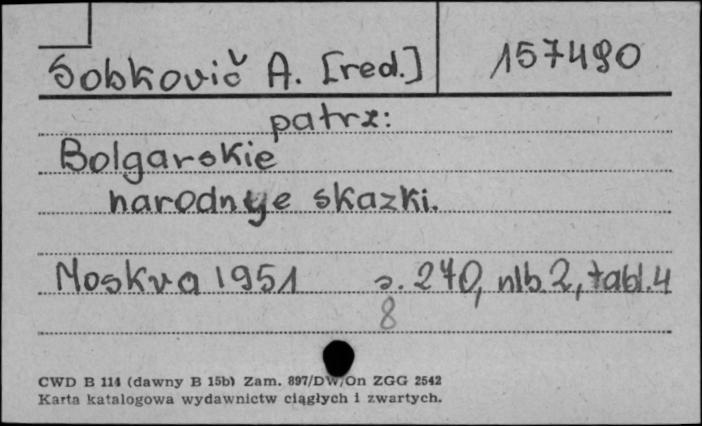 Sobkovič A. [red.]
157490
patrz:
Bolgarskie
narodnye skazki.
Moskva 1951 s. 270, nlb. 2, tabl. 4
8
CWD B 114 (dawny B 15b) Zam. 897/DW/On ZGG 2542
Karta katalogowa wydawnictw ciągłych i zwartych.